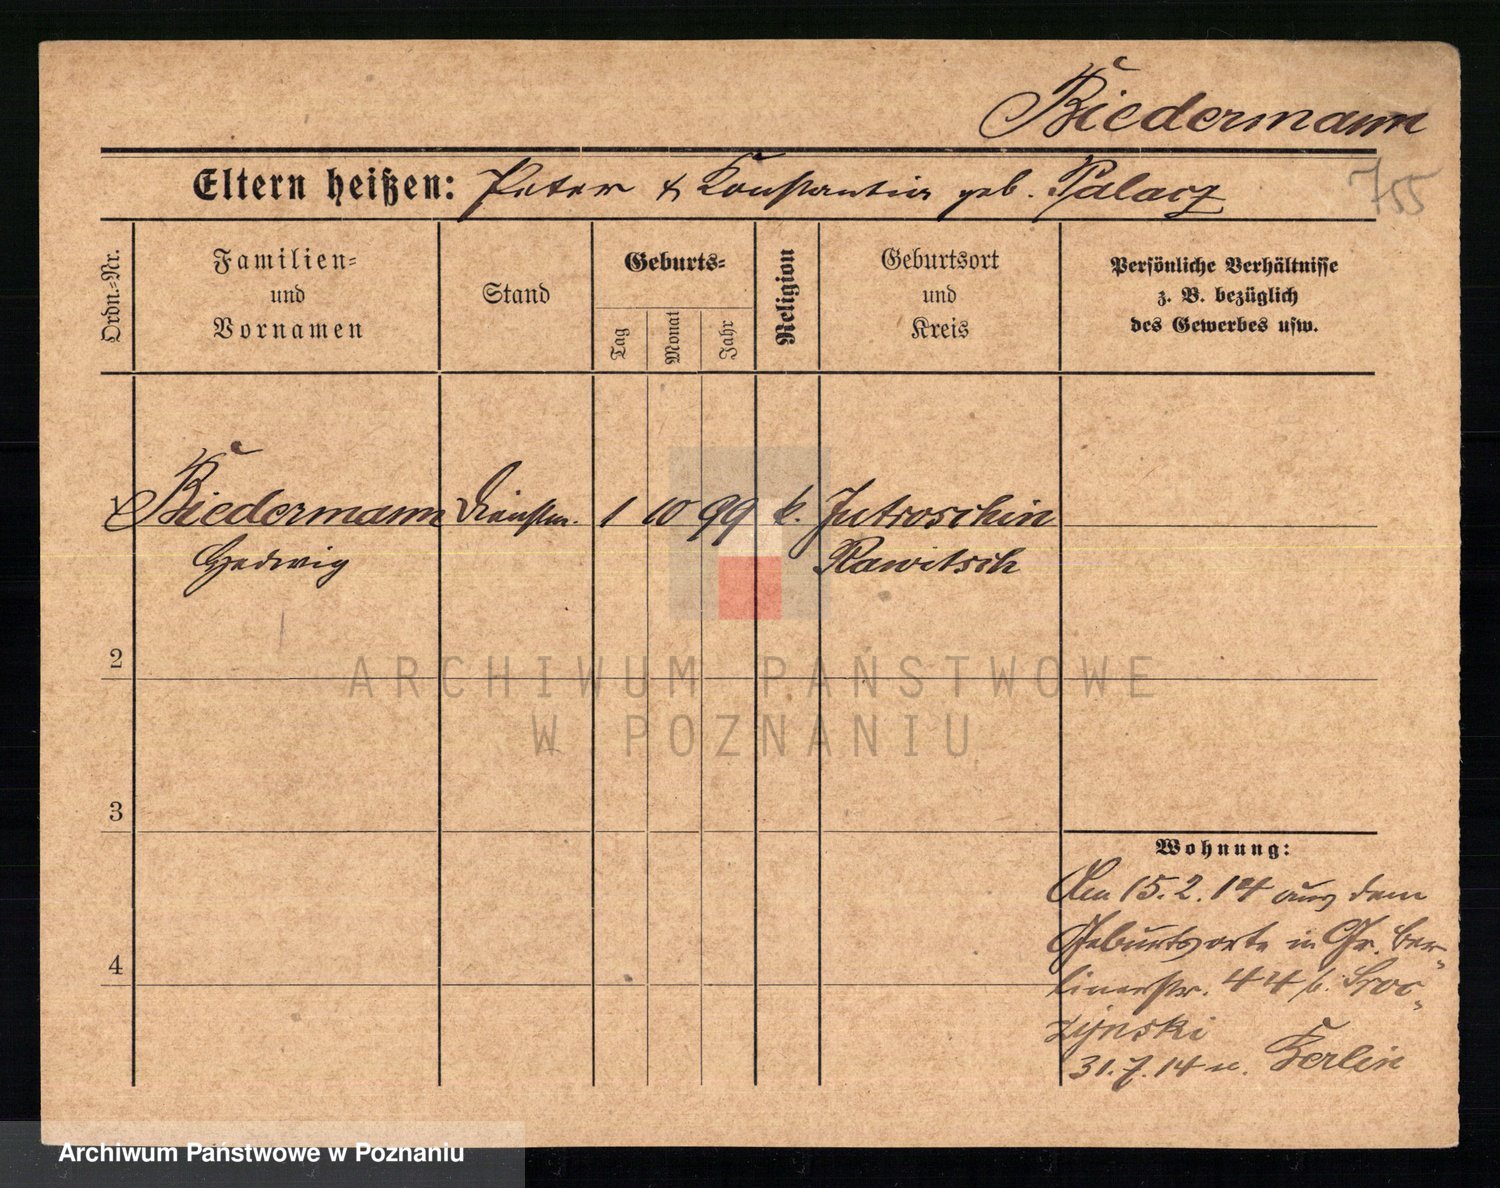 Biedermann
Eltern heißen: Peter & Konstantia geb. Palacz
755
Ordn.-Nr.
Familien-
und
Vornamen
Stand
Geburts-
Tag
Monat
Jahr
Religion
Geburtsort
und
Kreis
Persönliche Verhältnisse
z. B. bezüglich
des Gewerbes usw.
1 Biedermann Dienstm. 1 10 99 k. Jutroschin
Hedwig Rawitsch
2
ARCHIWUM PAŃSTWOWE
W POZNANIU
3
Wohnung:
Am 15.2.14 aus dem
Geburtsorte in Gr. Ber-
4
linerstr. 44 b. Sroc-
zynski
31.7.14 n. Berlin
Archiwum Państwowe w Poznaniu